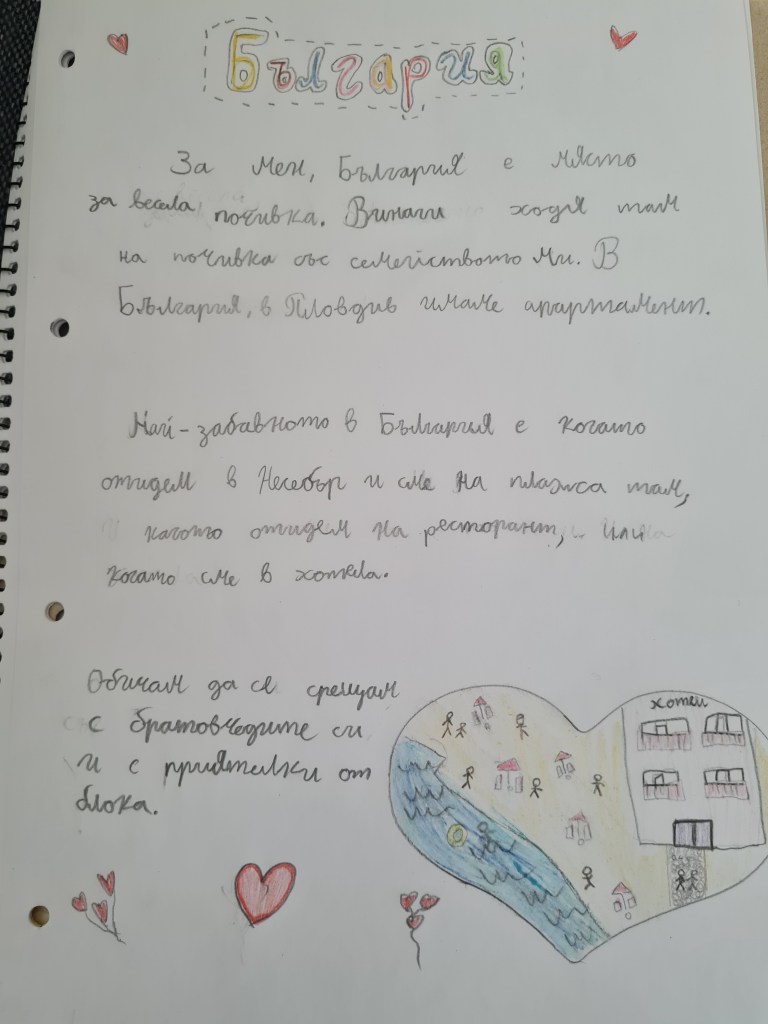 България
За мен, България е място
за весела почивка. Винаги ходя там
на почивка със семейството ми. В
България, в Пловдив имаме апартамент.
Най-забавното в България е когато
отидем в Несебър и сме на плажа там,
когато отидем на ресторант, или
когато сме в хотела.
Обичам да се срещам
с братовчедите си
и с приятелки от
блока.
хотел